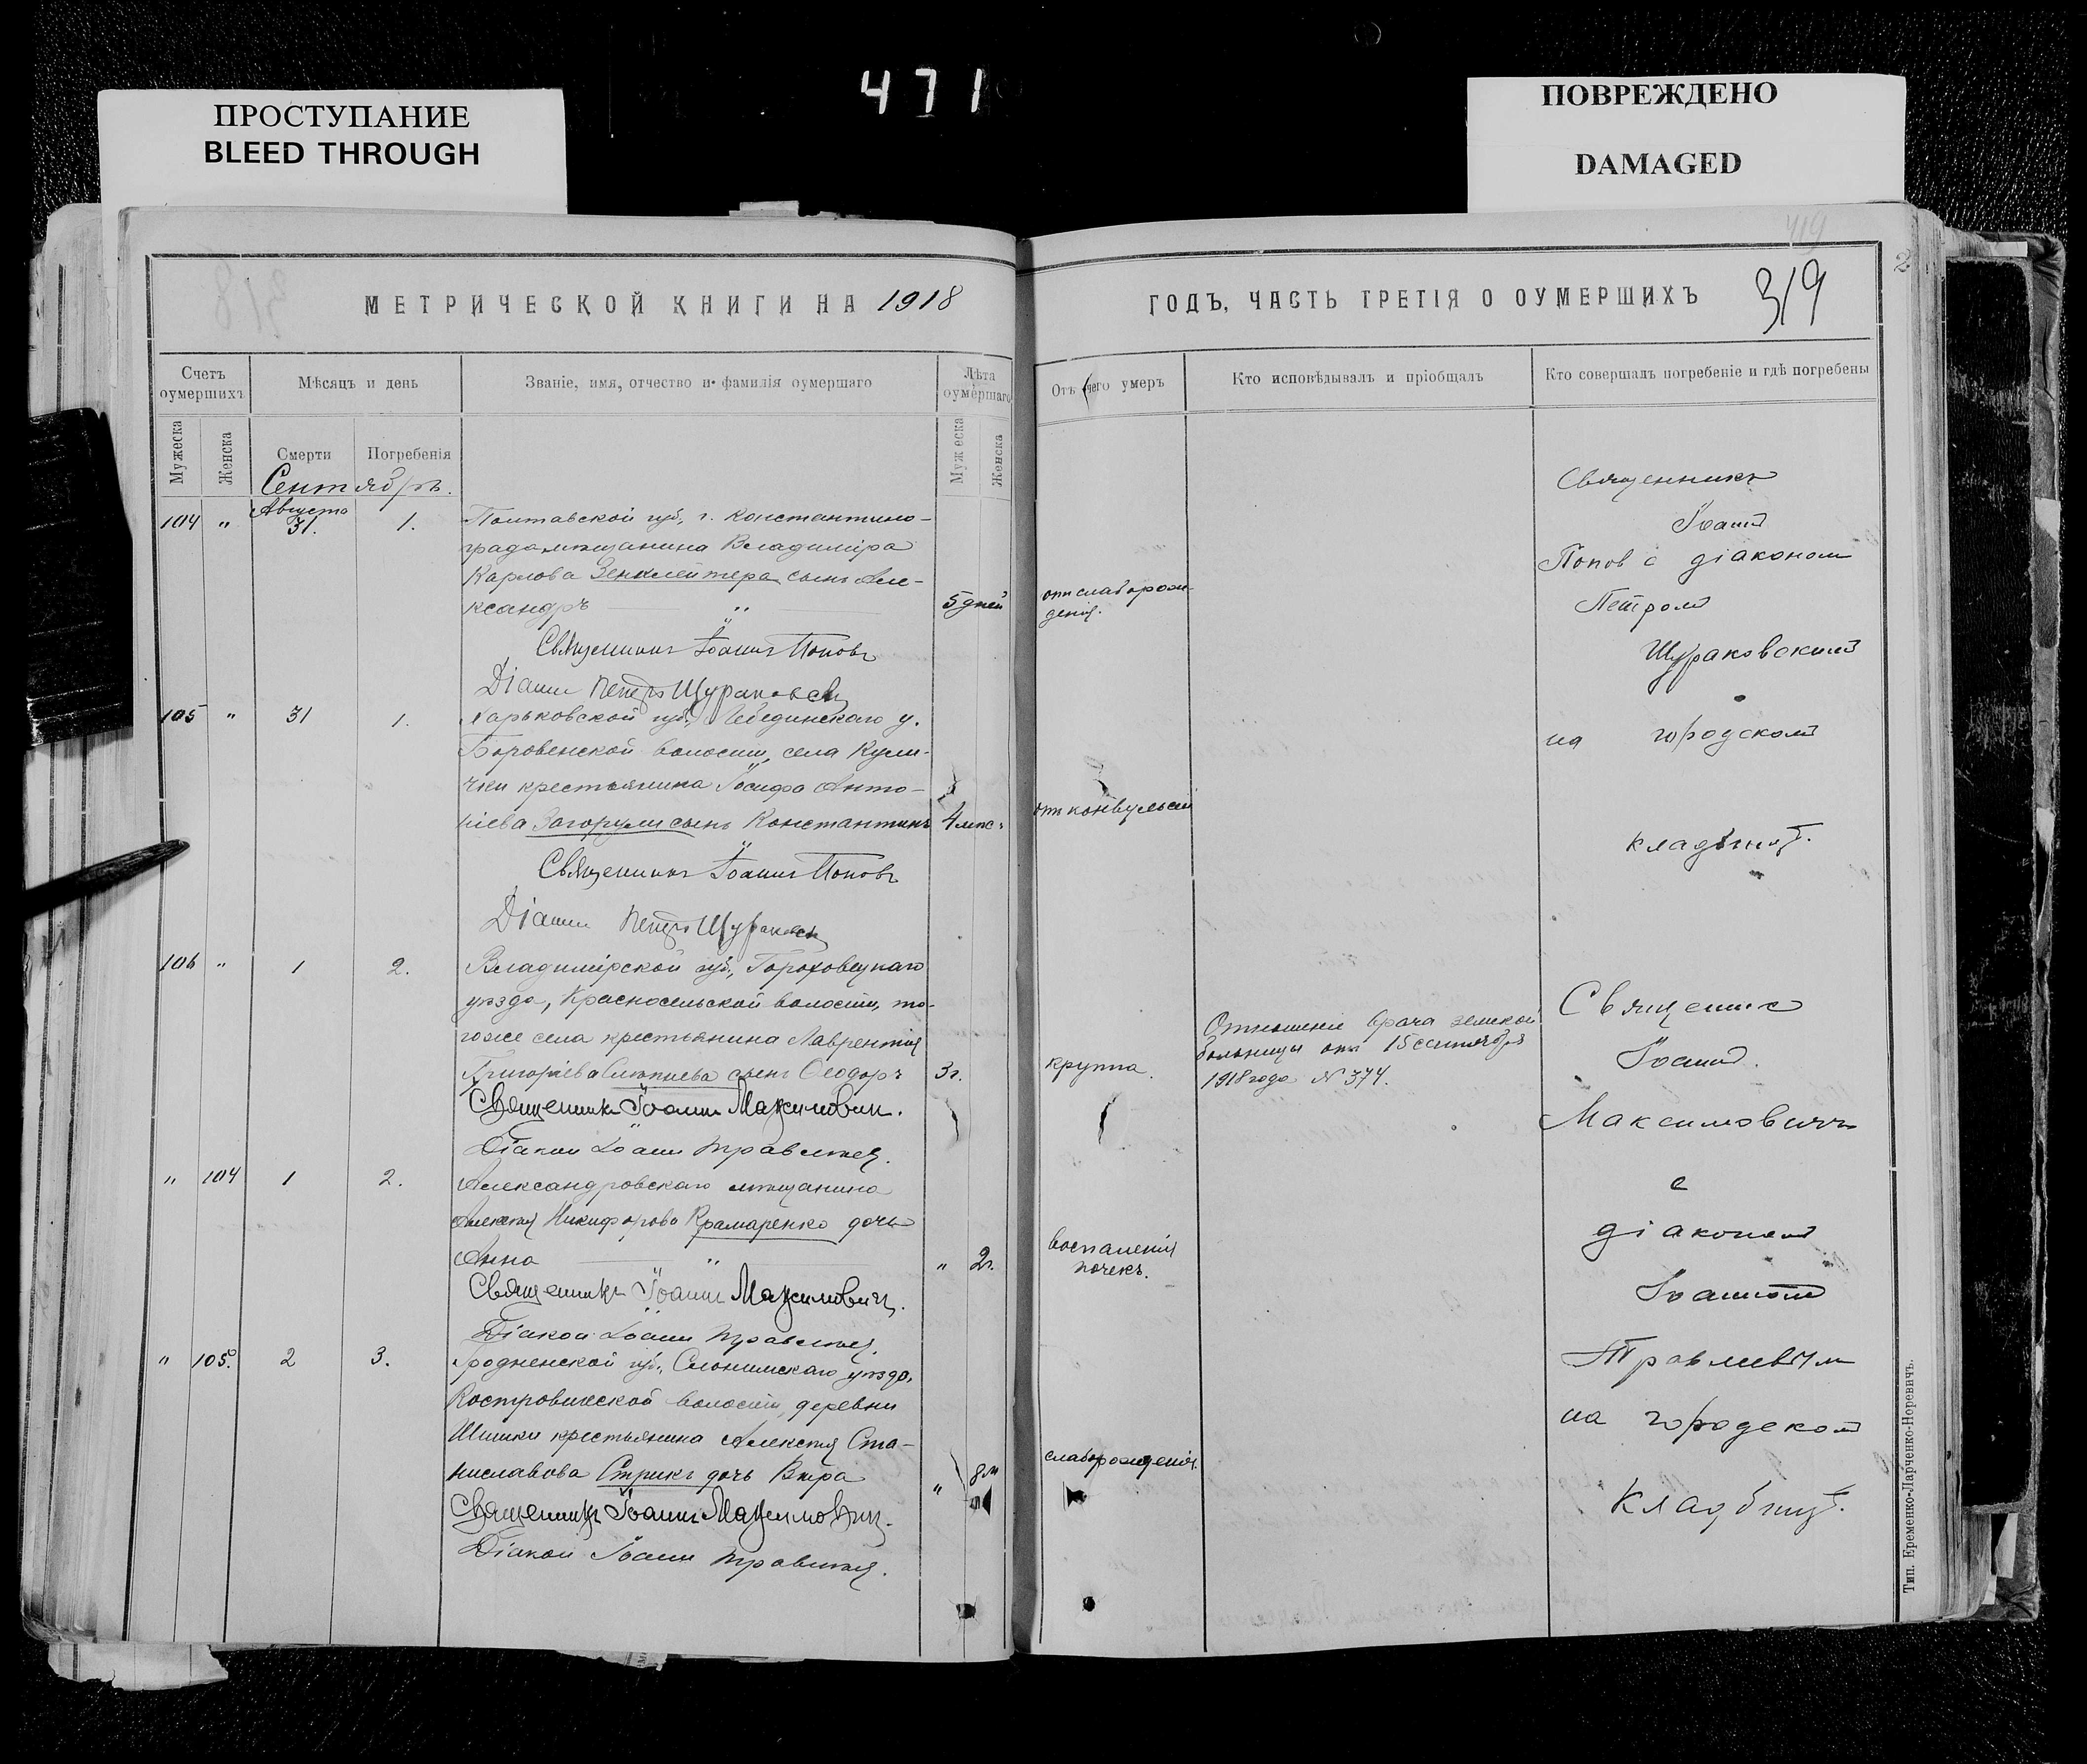 471
ПРОСТУПАНИЕ
BLEED THROUGH
ПОВРЕЖДЕНО
DAMAGED
419
2
МЕТРИЧЕСКОЙ КНИГИ НА 1918
ГОДЪ, ЧАСТЬ ТРЕТІЯ О ОУМЕРШИХЪ
319
Счетъ оумершихъ
Мѣсяцъ и день
Званіе, имя, отчество и фамилія оумершаго
Лѣта оумершаго
Отъ чего умеръ
Кто исповѣдывалъ и пріобщалъ
Кто совершалъ погребеніе и гдѣ погребены
Мужеска
Женска
Смерти
Погребенія
Мужеска
Женска
Сентябрь.
104 " Августа 31. 1.
Полтавской губ., г. Константино-
града мѣщанина Владиміра
Карлова Зенклейтера сынъ Але-
ксандръ — " —
5 дней
отъ слаборож-
денія.
Священникъ Іоаннъ Поповъ
Діаконъ Петръ Щураковскій
105 " 31 1.
Харьковской губ., Лебединскаго у.
Боровенской волости, села Кули-
чки крестьянина Іосифа Анто-
ніева Загорули сынъ Константинъ
4 мѣс.
отъ конвульсій
Священникъ Іоаннъ Поповъ
Діаконъ Петръ Щураковскій
Священникъ
Іоаннъ
Попов с діаконом
Петромъ
Щураковскимъ
на городскомъ
кладбищѣ.
106 " 1 2.
Владимірской губ., Гороховецкаго
уѣзда, Красносельской волости, то-
гоже села крестьянина Лаврентія
Григоріева сынъ Ѳеодоръ
3 г.
круппа.
Отношеніе врача земской
больницы отъ 15 сентября
1918 года № 374.
Священникъ Іоаннъ Максимович.
Діаконъ Іоаннъ
" 104 1 2.
Александровскаго мѣщанина
Алексѣя Никифорова Крамаренко дочь
Анна — " —
" 2 г.
воспаленія
почекъ.
Священникъ Іоаннъ Максимович.
Діакон Іоаннъ
" 105. 2 3.
Гродненской губ., Слонимскаго уѣзда,
Костровичской волости, деревни
Шишки крестьянина Алексѣя Ста-
ниславова Стрикъ дочь Вѣра
" 8 м
слаборожденія.
Священникъ Іоаннъ Максимович.
Діакон Іоаннъ
Священник
Іоанн.
Максимовичъ
с
діаконом
Іоанномъ
на городском
кладбищѣ.
Тип. Еременко-Ларченко-Норевичъ.